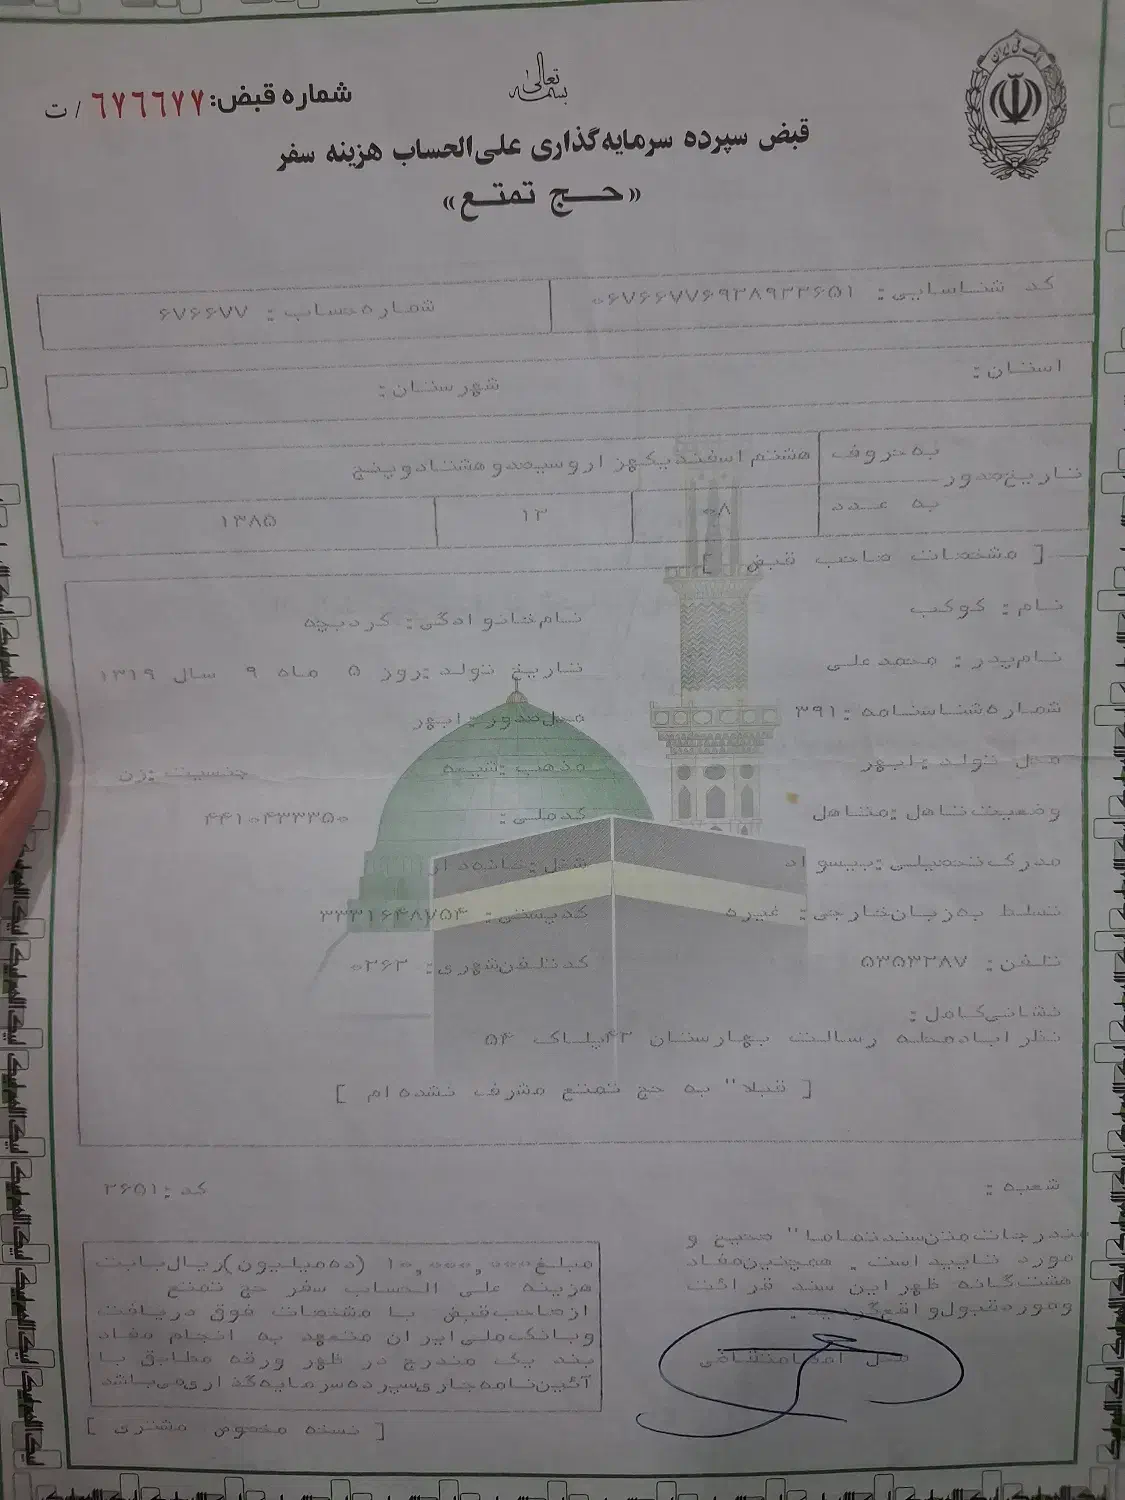 بانک ملی ایران
بسمه تعالی
شماره قبض: ٦٧٦٦٧٧ / ت
قبض سپرده سرمایه‌گذاری علی‌الحساب هزینه سفر
«حـــج تمتـــع»
کد شناسایی: ۰۶۷۶۶۷۷۶۹۳۸۹۳۳۶۵۱ شماره‌حساب: ۶۷۶۶۷۷
استان: شهرستان:
تاریخ‌صدور به حروف هشتم اسفند یکهزار و سیصد و هشتاد و پنج
به عدد ۰۸ ۱۲ ۱۳۸۵
[ مشخصات صاحب قبض ]
نام: کوکب نام‌خانوادگی: کردبچه
نام‌پدر: محمدعلی تاریخ تولد: روز ۵ ماه ۹ سال ۱۳۱۹
شماره‌شناسنامه: ۳۹۱ محل‌صدور: ابهر
محل تولد: ابهر مذهب: شیعه جنسیت: زن
وضعیت‌تاهل: متاهل کدملی: ۴۴۱۰۴۳۳۳۵۰
مدرک‌تحصیلی: بیسواد شغل: خانه‌دار
تسلط به‌زبان‌خارجی: غیره کدپستی: ۳۳۳۱۶۴۸۷۵۴
تلفن: ۵۳۵۳۳۸۷ کدتلفن‌شهری: ۰۲۶۲
نشانی‌کامل:
نظراباد محله رسالت بهارستان ۴۲ پلاک ۵۴
[ قبلا" به حج تمتع مشرف نشده‌ام ]
شعبه: کد: ۲۶۵۱
مندرجات متن‌سند تماما" صحیح و
مورد تایید است. همچنین مفاد
هشت‌گانه ظهر این سند قرائت
و مورد قبول واقع گردید.
محل امضا متقاضی
مبلغ ۱۰,۰۰۰,۰۰۰ (ده‌میلیون) ریال بابت
هزینه علی الحساب سفر حج تمتع
از صاحب قبض با مشخصات فوق دریافت
و بانک ملی ایران متعهد به انجام مفاد
بند یک مندرج در ظهر ورقه مطابق با
آئین‌نامه جاری سپرده سرمایه‌گذاری می‌باشد
[ نسخه مخصوص مشتری ]